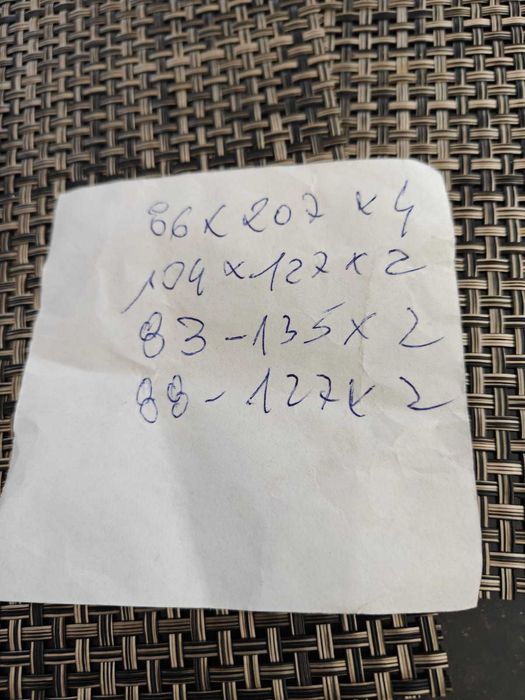 86 x 207 x 4
104 x 127 x 2
83 - 135 x 2
88 - 127 x 2